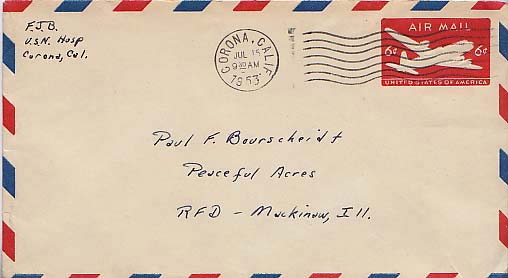 F.J.B.
U.S.N. Hosp
Corona, Cal.
CORONA, CALIF.
JUL 15
9 30 AM
1953
AIR MAIL
6¢ 6¢
UNITED STATES OF AMERICA
Paul F. Bourscheidt
Peaceful Acres
RFD - Mackinaw, Ill.